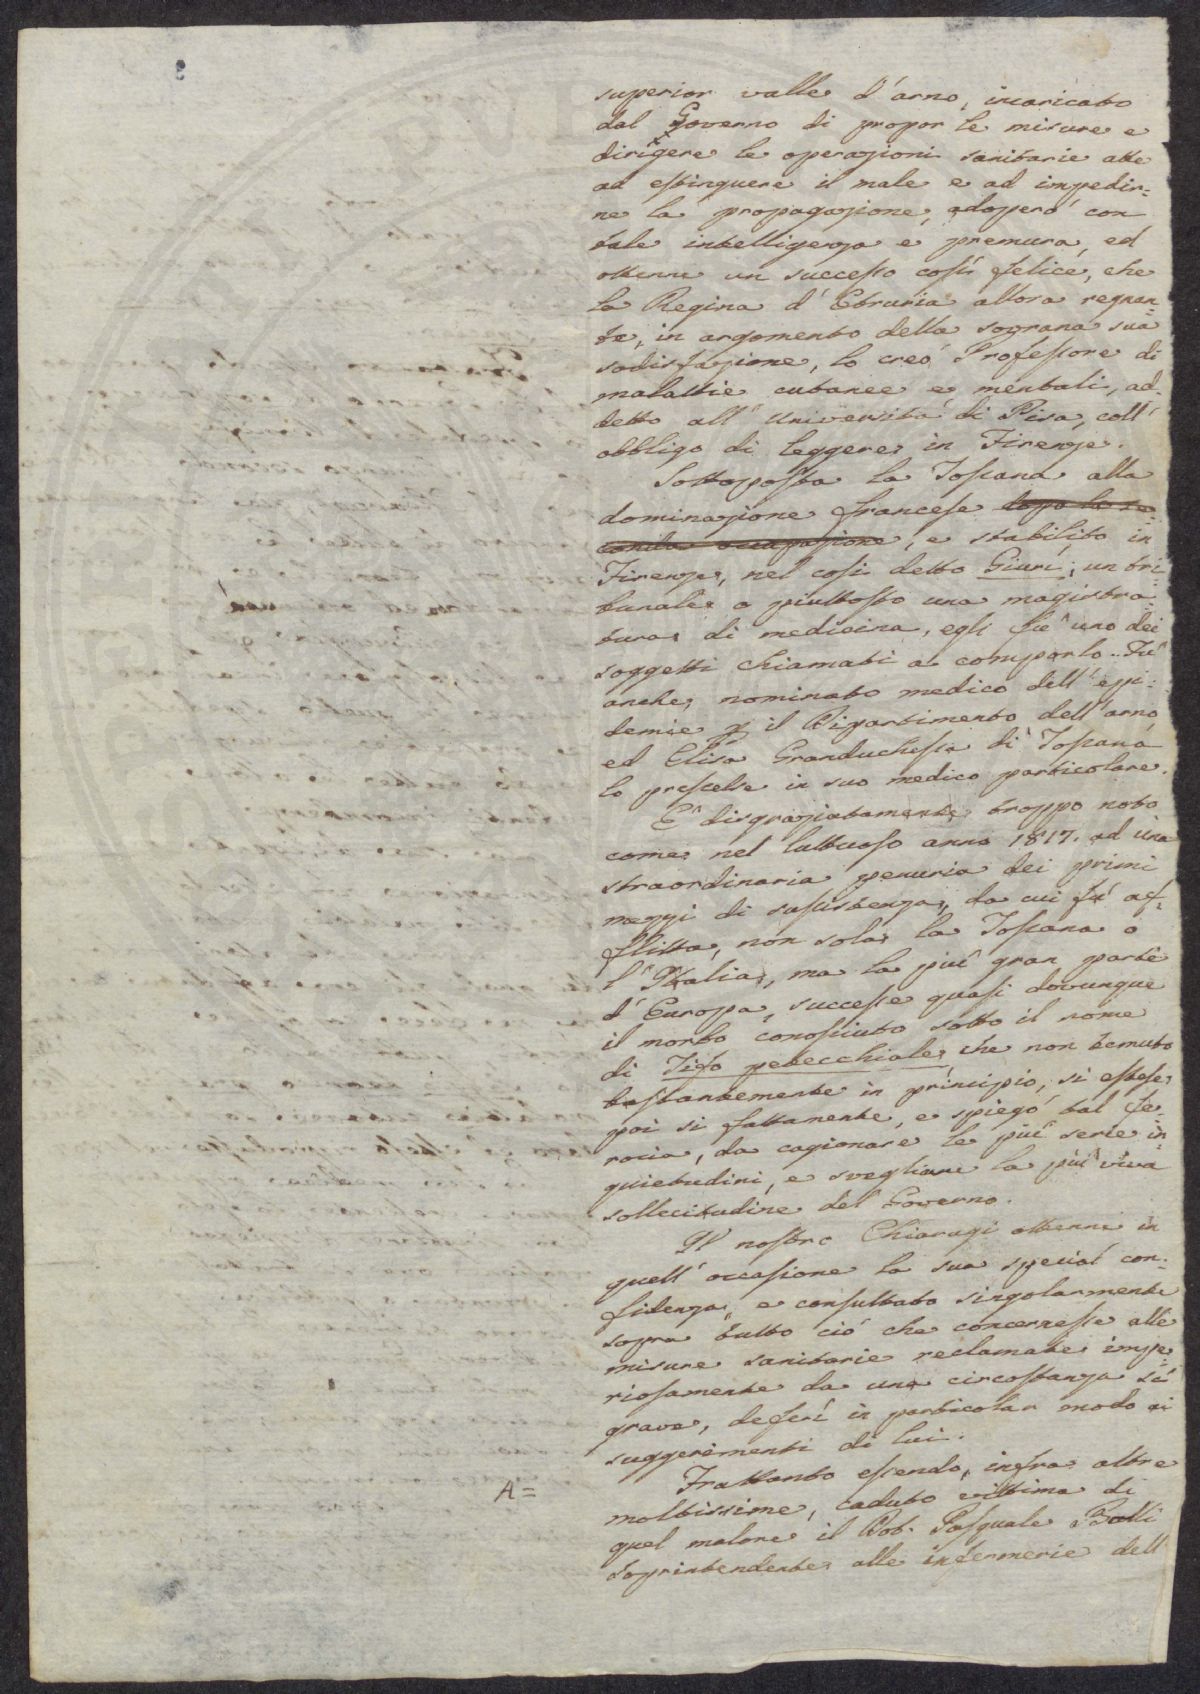 superior valle d'arno, incaricato
dal Governo di propor le misure e
dirigere le operazioni sanitarie atte
ad estinguere il male e ad impedir=
ne la propagazione, adoperò con
tale intelligenza e premura, ed
ottenne un successo così felice, che
la Regina d'Etruria allora regnan=
te, in argomento della sovrana sua
sodisfazione, lo creò Professore di
malattie cutanee e mentali, ad=
detto all'Università di Pisa, coll'
obbligo di leggere in Firenze.
Sottoposta la Toscana alla
dominazione francese dopo la se=
conda occupazione, e stabilito in
Firenze, nel così detto Giurì, un tri=
bunale o piuttosto una magistra=
tura di medicina, egli fu uno dei
soggetti chiamati a comporlo. Fù
anche nominato medico dell'epi=
demie p il Dipartimento dell'arno,
ed Elisa Granduchessa di Toscana
lo prescelse in suo medico particolare.
È disgraziatamente troppo noto
come nel luttuoso anno 1817. ad una
straordinaria penuria dei primi
mezzi di sussistenza, da cui fù af=
flitta, non sola la Toscana o
l'Italia, ma la più gran parte
d'Europa, successe quasi dovunque
il morbo conosciuto sotto il nome
di Tifo petecchiale, che non temuto
bastantemente in principio, si estese
poi sì fattamente, e spiegò tal fe=
rocia, da cagionare le più serie in=
quietudini, e svegliare la più viva
sollecitudine del Governo.
Il nostro Chiarugi ottenne in
quell'occasione la sua special con=
fidenza, e consultato singolarmente
sopra tutto ciò che concernesse alle
misure sanitarie reclamate impe=
riosamente da una circostanza sì
grave, deferì in particolar modo ai
suggerimenti di lui.
Frattanto essendo, infra altre
moltissime, caduto vittima di
A=
quel malore il Dot. Pasquale Batti
soprintendente alle infermerie dell'